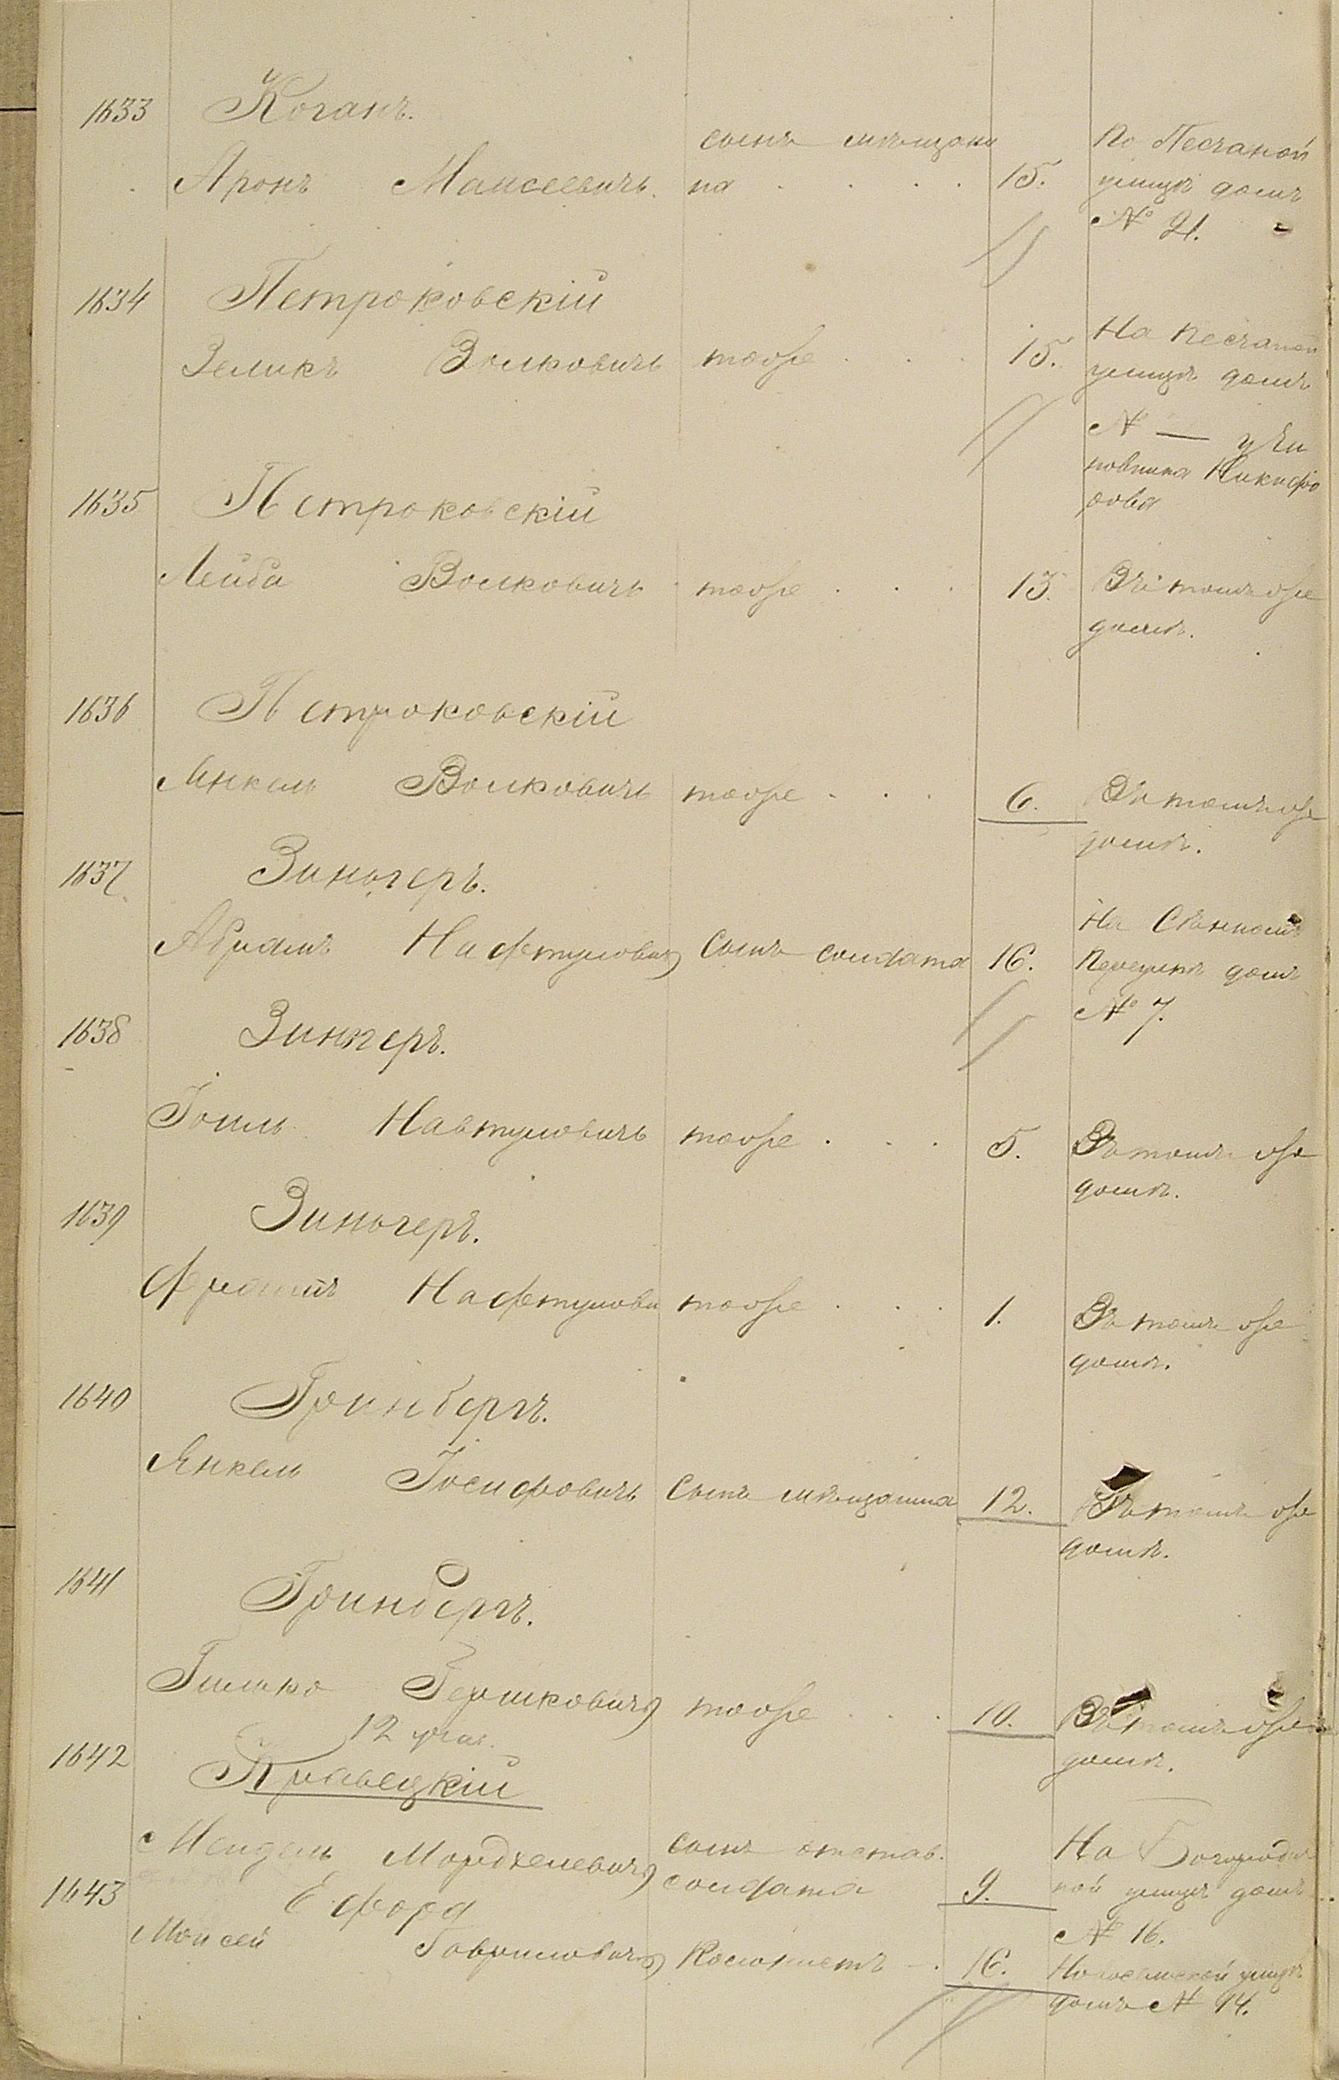 1633 Коганъ.
сынъ мѣщани
По Песчаной
Аронъ Маисеевичъ. на . . . . 15. улицѣ домъ
№ 21.
1634 Петроковскій
На Песчаной
Зеликъ Волковичъ тоже . . . 15. улицѣ домъ
№ — у Чи
новника Никифо
рова
1635 Петроковскій
Лейба Волковичъ тоже . . . 13. Въ томъ же
домѣ.
1636 Петроковскій
Янкель Волковичъ тоже . . . 6. Въ томъ же
домѣ.
1637 Зингеръ.
На Сѣнномъ
Абрамъ Нафтулович) Сынъ солдата 16. Переулкѣ домъ
№ 7.
1638 Зингеръ.
Іоиль Навтуловичъ тоже . . . 5. Въ томъ же
домѣ.
1639 Зингеръ.
Нафтулови тоже . . . 1. Въ томъ же
домѣ.
1640 Гринбергъ.
Янкель Іосифовичъ Сынъ мѣщанина 12. Въ томъ же
домѣ.
1641 Гринбергъ.
Гершкович) тоже . . . 10. Въ томъ же
домѣ.
12
1642 Кравецкій
сынъ отстав. На Богородич
Мендель Мордхелевич) солдата 9. ной улицѣ домъ
№ 16.
1643 Ефорд
Моисей Гавриловичъ) Колонистъ . 16. улицѣ
домъ № 94.